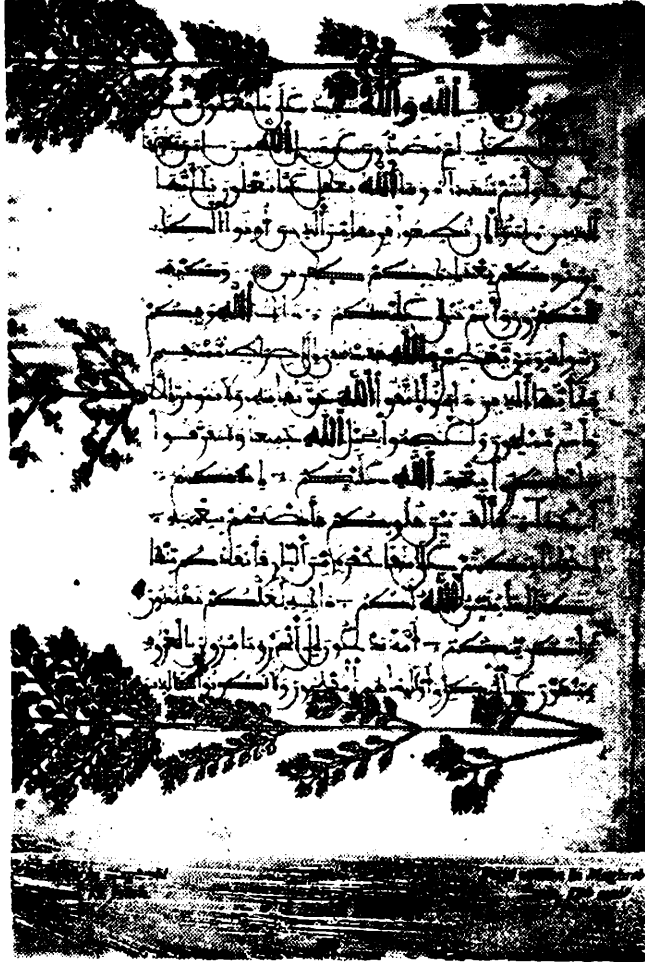 الله والله شهيد على ما تعملون قل
الكتاب لم تصدون عن سبيل الله من ءامن تبغونها
عوجا وأنتم شهداء وما الله بغافل عما تعملون يأيها
الذين ءامنوا إن تطيعوا فريقا من الذين أوتوا الكتاب
يردوكم بعد إيمانكم كافرين وكيف
تكفرون وأنتم تتلى عليكم ءايات الله وفيكم
رسوله ومن يعتصم بالله فقد هدي إلى صراط مستقيم
يأيها الذين ءامنوا اتقوا الله حق تقاته ولا تموتن إلا
وأنتم مسلمون واعتصموا بحبل الله جميعا ولا تفرقوا
واذكروا نعمت الله عليكم إذ كنتم
أعداء فألف بين قلوبكم فأصبحتم بنعمته
إخوانا وكنتم على شفا حفرة من النار فأنقذكم منها
كذلك يبين الله لكم ءايته لعلكم تهتدون
ولتكن منكم أمة يدعون إلى الخير ويأمرون بالمعروف
وينهون عن المنكر وأولئك هم المفلحون ولا تكونوا كالذين
in Maghreb